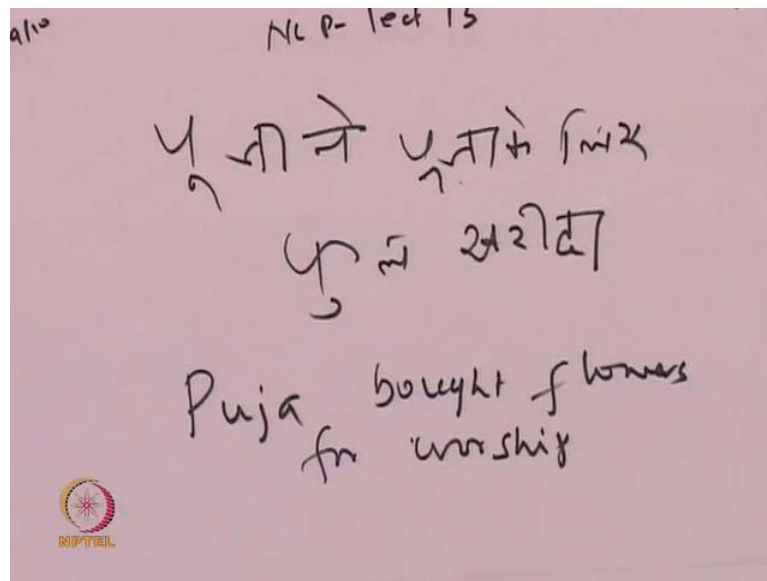 NLP- lect 15
पूजा ने पूजा के लिए
फुल खरीदा
Puja bought flowers
for worship
NPTEL